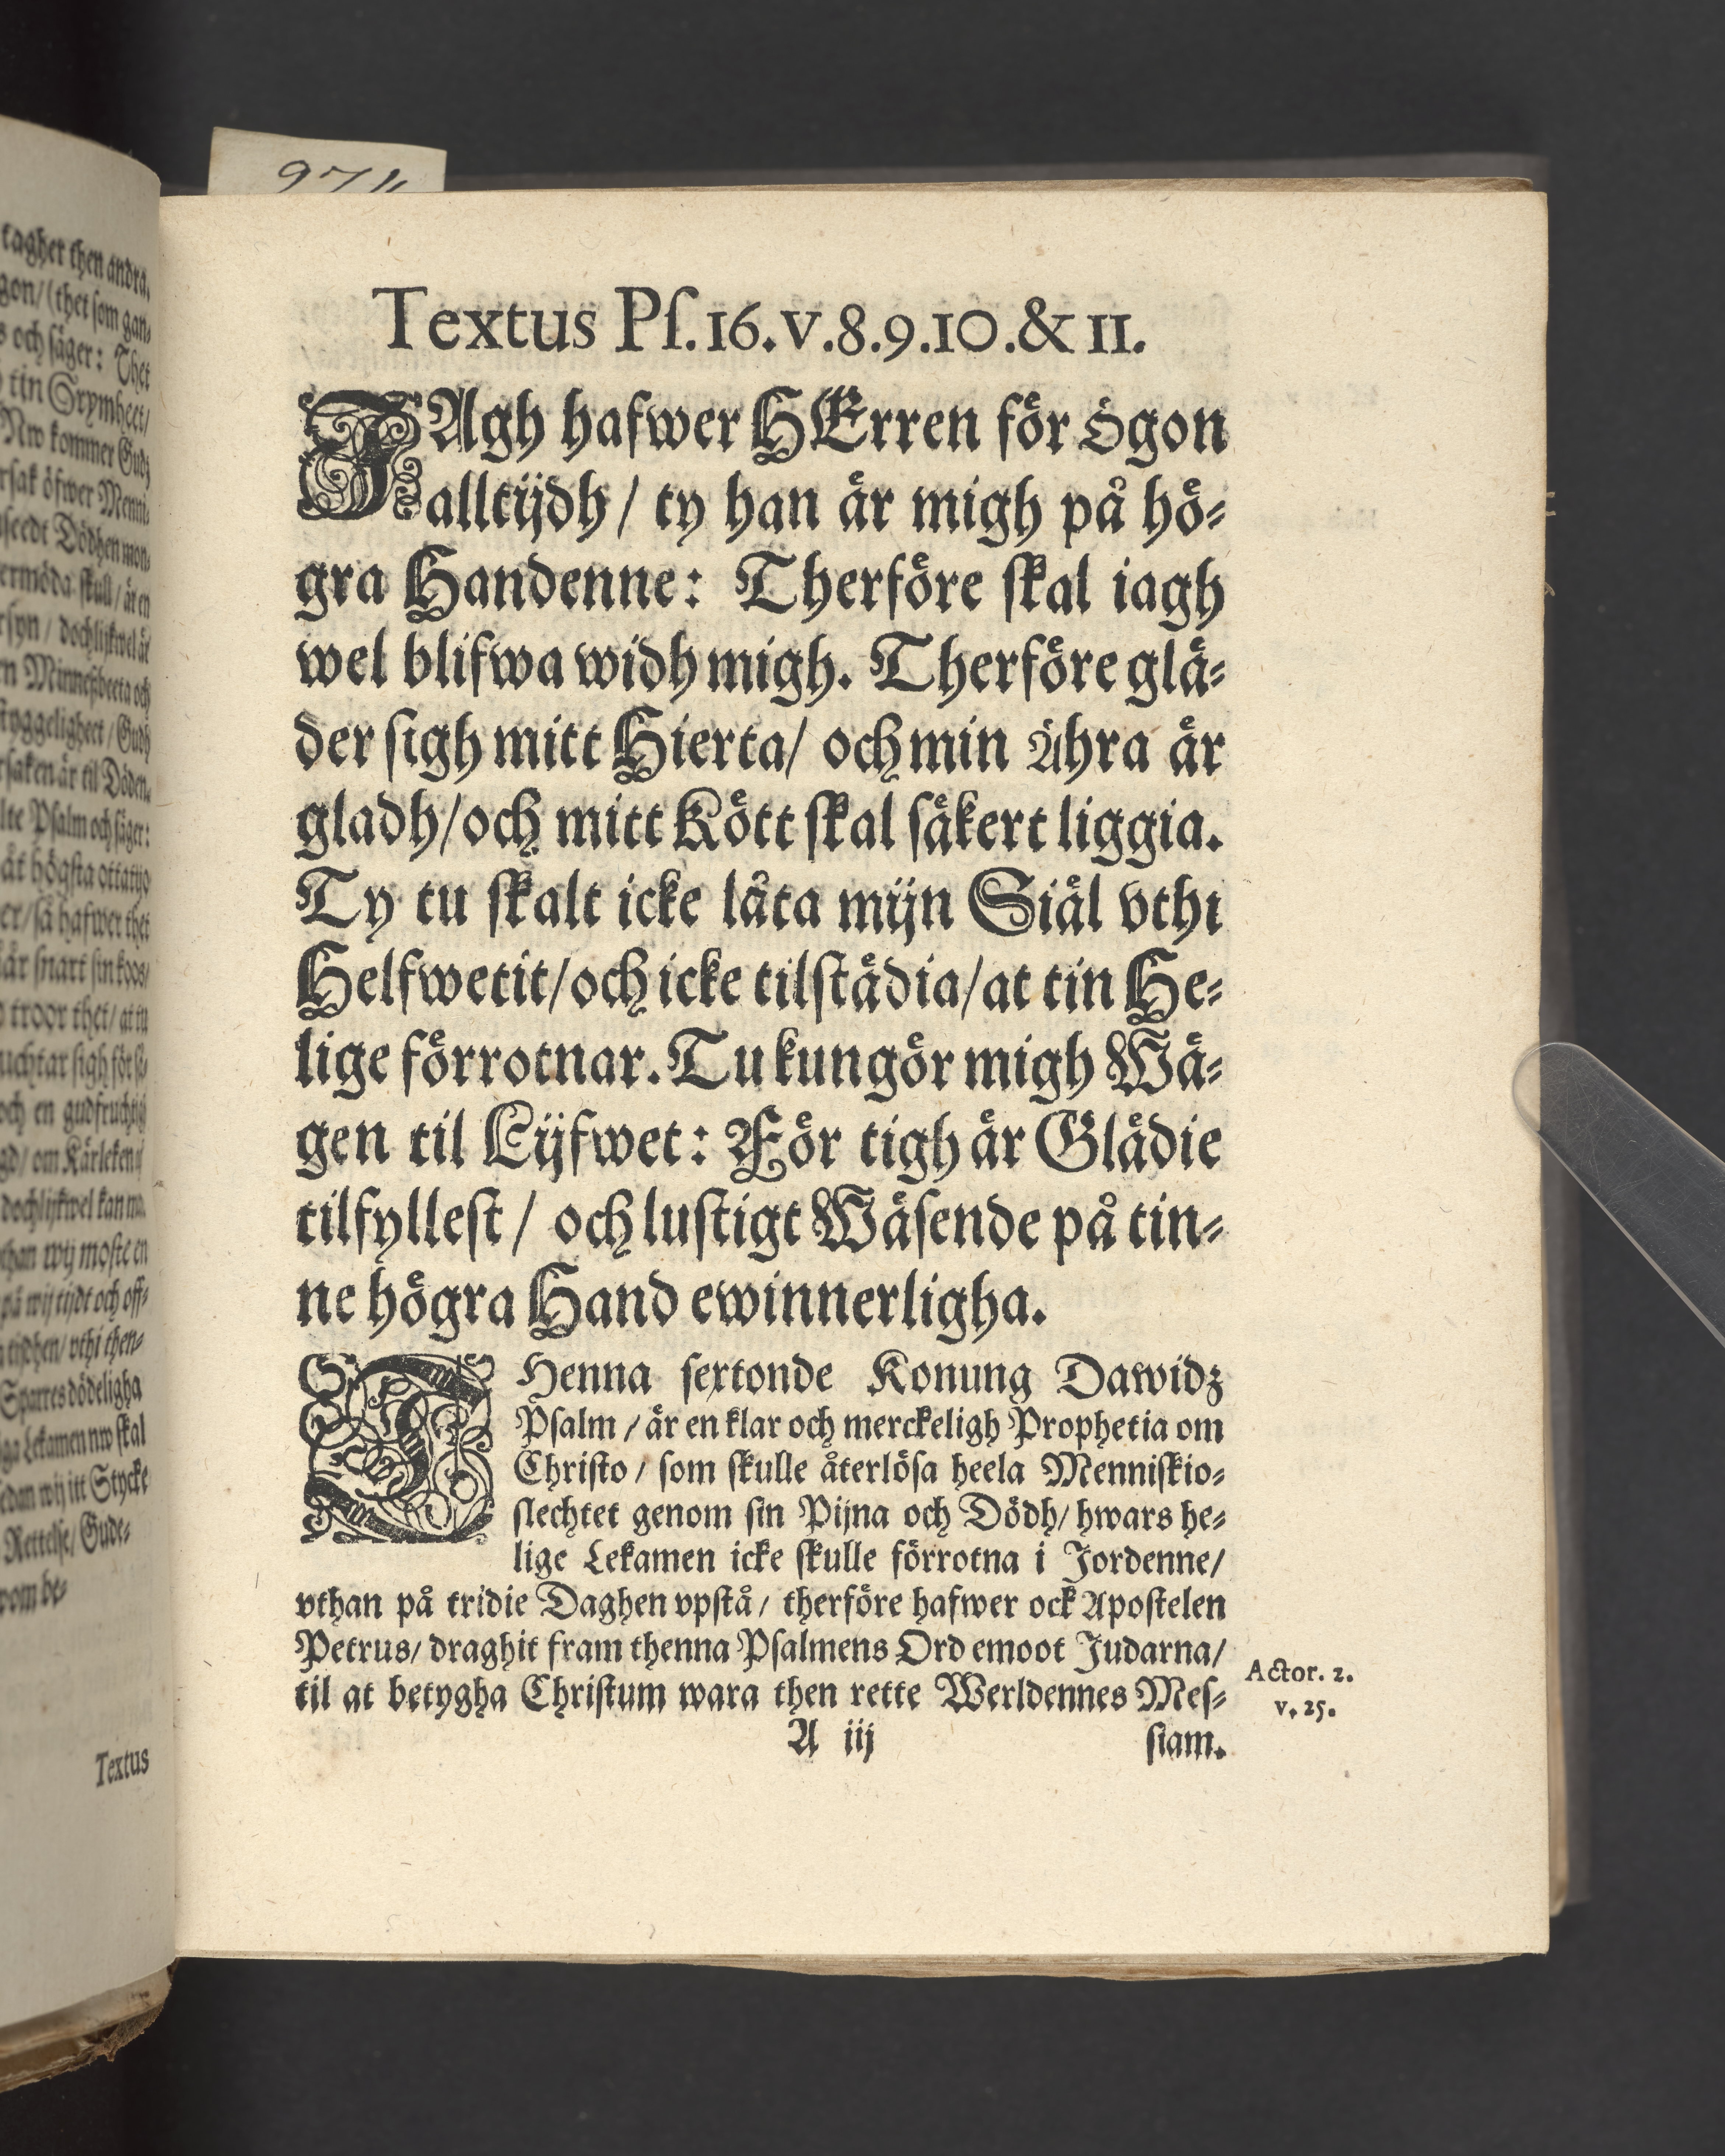 9711
tagher then andra.
gon/ (thet som gan-
s och säger: Thet
tin Grymheet/
Nw kommer Gudz
rsak öfwer Menni-
skeedt Dödhen mon-
ermöda skull/ är en
rsyn/ dochlijkwel är
n Minneßbeeta och
tyggeligheet/ Gudh
rsaken är til Döden.
lte Psalm och säger:
åt högsta ottatijo
er/ så hafwer thet
är snart sin koos/
troor thet/ at tu
uchtar sigh för si-
och en gudfruchtigh
gd/ om Kärleken
dochlijkwel kan
than wij moste en
på wij tijdt och off-
tijdhen/ vthi then-
Sparres dödeligha
iga Lekamen nw skal
edan wij itt Stycke
Rettelse/ Gude-
Textus
Textus Pſ.16.v.8.9.10.& 11.
JAgh hafwer HErren för ögon
alltijdh / ty han är migh på hö-
gra Handenne: Therföre ſkal iagh
wel blifwa widh migh. Therföre glä-
der ſigh mitt Hierta/ och min Ähra är
gladh/och mitt Kött ſkal ſäkert liggia.
Ty tu ſkalt icke låta mijn Siäl vthi
Helfwetit/och icke tilſtädia/at tin He-
lige förrotnar. Tu kungör migh Wä-
gen til Lijfwet: För tigh är Glädie
tilfylleſt / och luſtigt Wäſende på tin-
ne högra Hand ewinnerligha.
THenna ſextonde Konung Dawidz
Pſalm / är en klar och merckeligh Prophetia om
Chriſto / ſom ſkulle återlöſa heela Menniſkio-
ſlechtet genom ſin Pijna och Dödh/ hwars he-
lige Lekamen icke ſkulle förrotna i Jordenne/
vthan på tridie Daghen vpſtå / therföre hafwer ock Apoſtelen
Petrus/ draghit fram thenna Pſalmens Ord emoot Judarna/
til at betygha Chriſtum wara then rette Werldennes Meſ-
Actor. 2.
v. 25.
A iij ſiam.